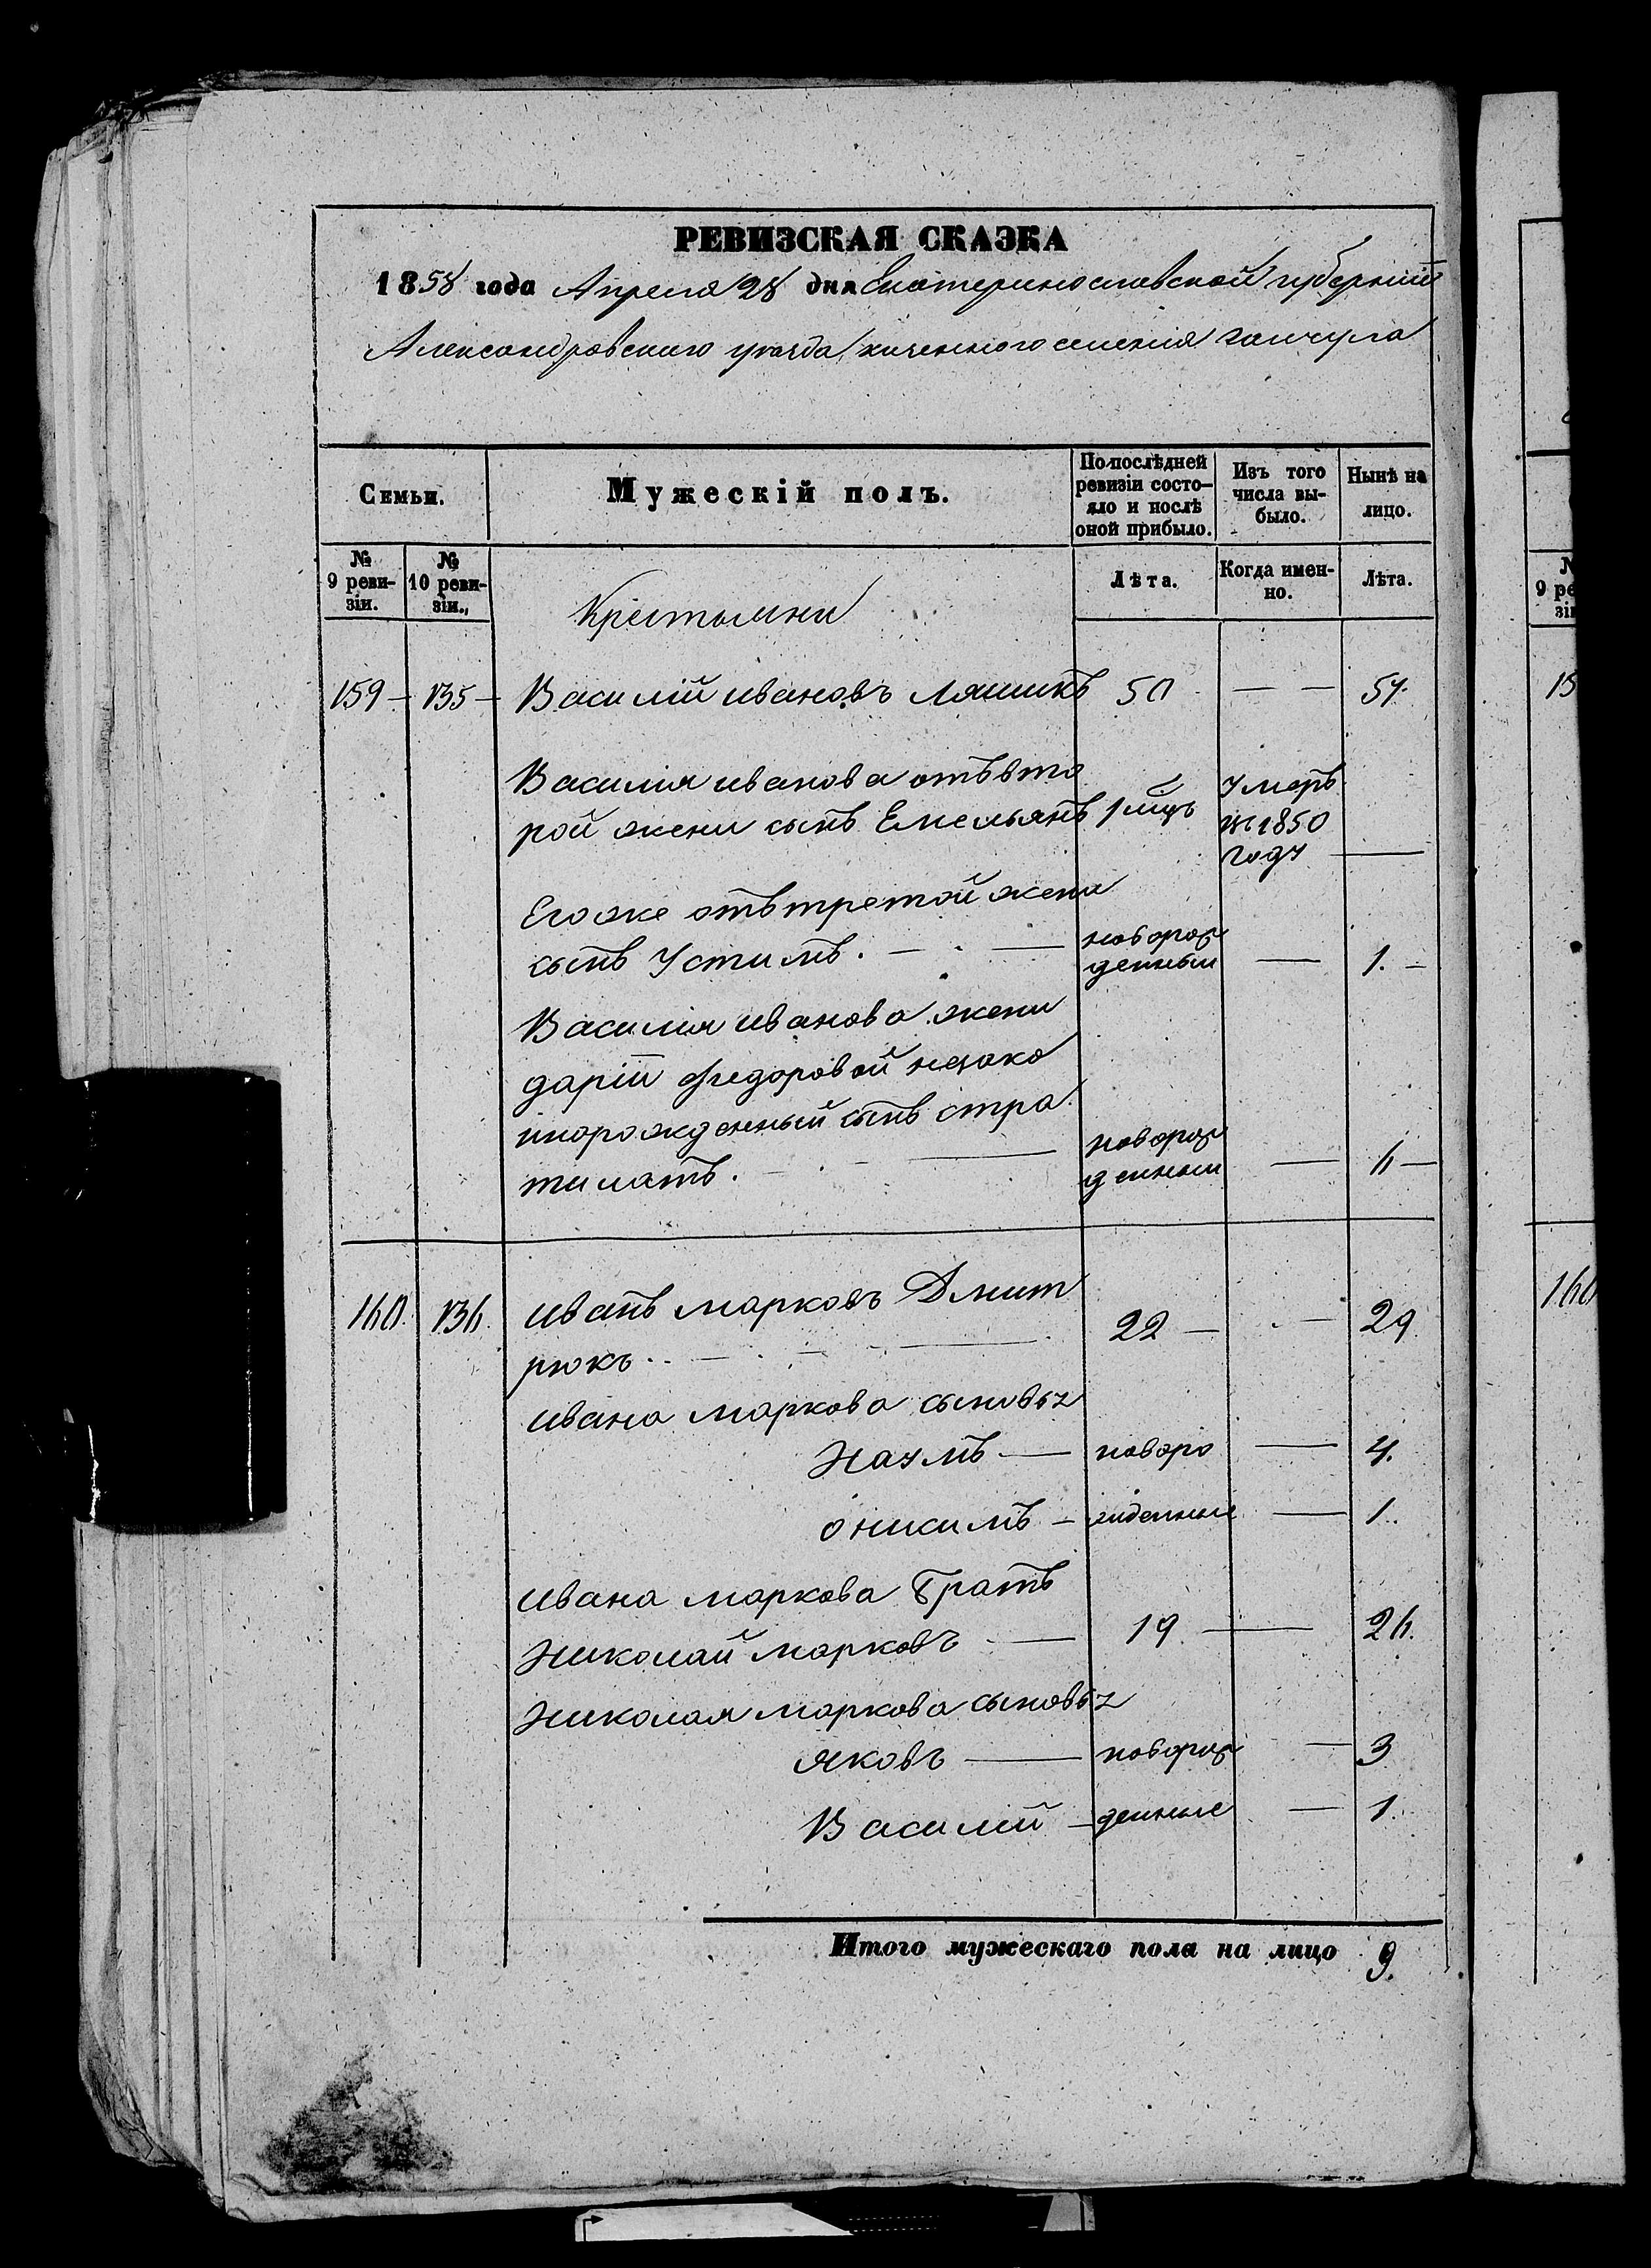 РЕВИЗСКАЯ СКАЗКА
1858 года Апреля 28 дня Екатеринославской губерніи
Александровского уезда казенного селения Гайчула
Семьи.
Мужескій полъ.
По послѣдней ревизіи состо-
яло и послѣ оной прибыло.
Изъ того числа вы-
было.
Нынѣ на лицо.
№ 9 реви-
зіи.
№ 10 реви-
зіи.
Крестьяни
Лѣта.
Когда имен-
но.
Лѣта.
159 - 135 - Василій ивановъ Ляшикъ 50 — — 57.
Василія иванова отъ вто
рой жени сынъ Емельянъ 1 мцъ Умеръ
въ 1850
году —
Его же отъ третой жени
сынъ Устимъ. — новорож
денный — 1. —
Василія иванова жени
дарій федоровой незако
норожденный сынъ стра
тилатъ. — новорож
денный — 1 —
160. 136. иванъ марковъ Дмит
рюкъ. — 22 — — 29.
ивана маркова сыновья
Наумъ — новоро — 4.
оникимъ — жденные — 1.
ивана маркова братъ
Николай марковъ — 19. — 26.
Николая маркова сыновья
яковъ — новорож — 3
Василій — денные — 1.
Итого мужескаго пола на лицо 9.
№
9 ре
зі
15
160